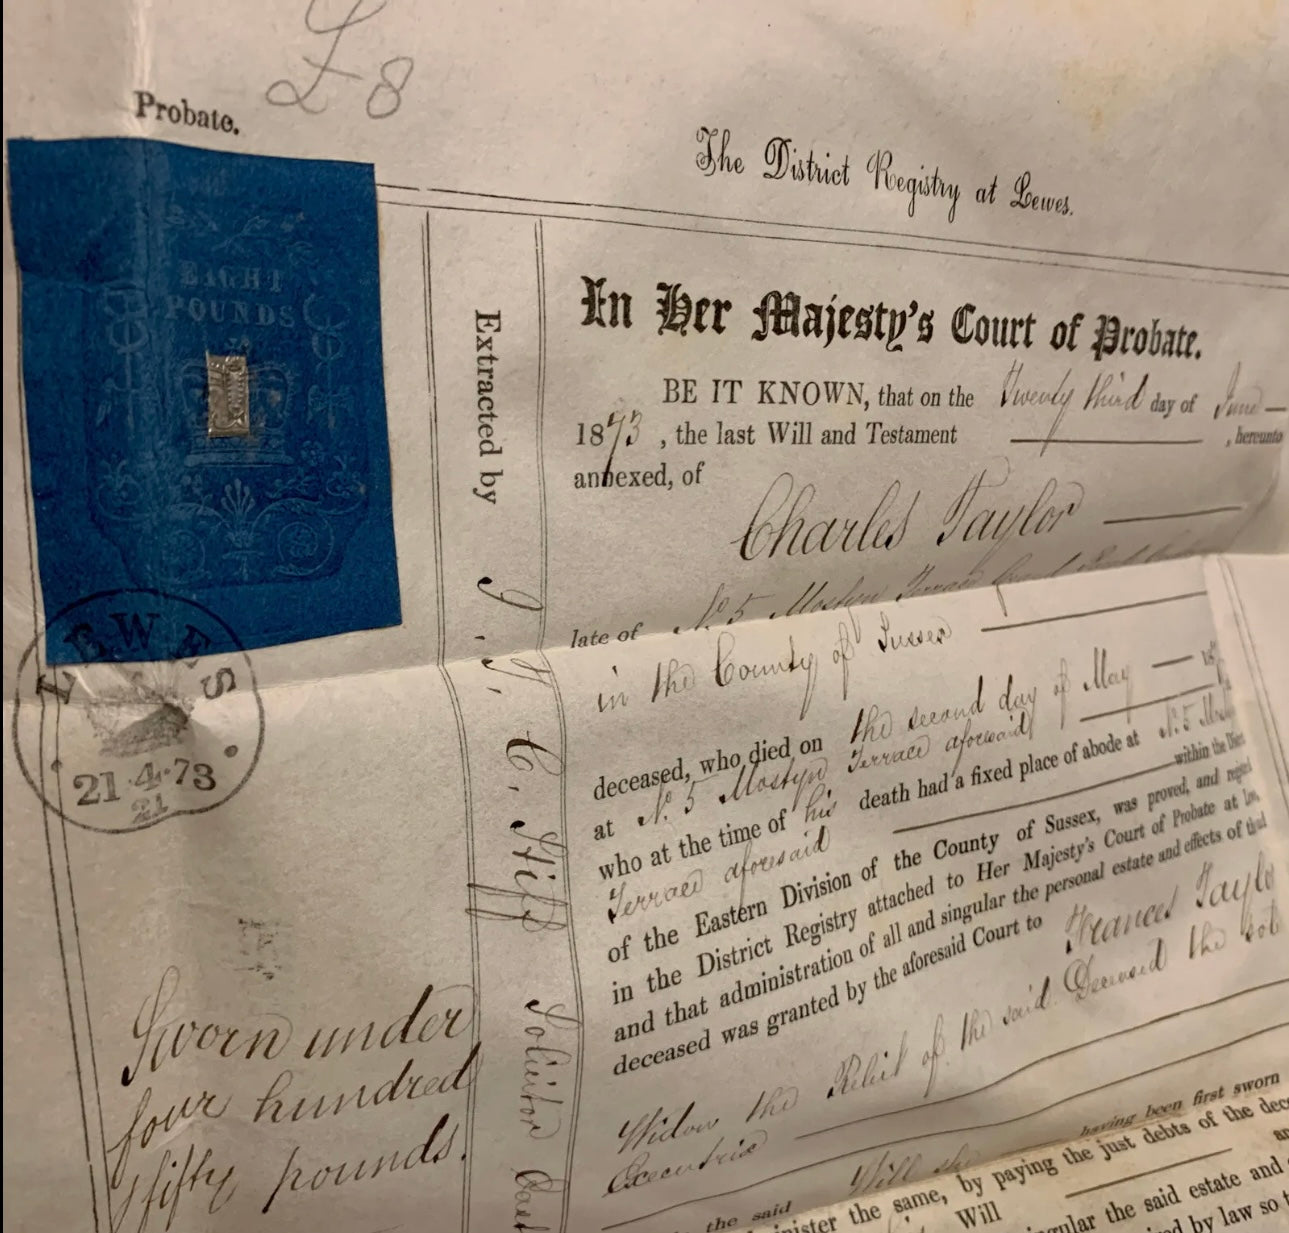 £8
Probate.
The District Registry at Lewes.
EIGHT
POUNDS
LEWES
21·4·73
21
Sworn under
four hundred
& fifty pounds.
Extracted by J. J. C. Solicitor
In Her Majesty's Court of Probate.
BE IT KNOWN, that on the Twenty third day of June
1873, the last Will and Testament , hereunto
annexed, of
Charles Taylor
late of No. 5 Mostyn Terrace
in the County of Sussex
deceased, who died on the second day of May 18
at No. 5 Mostyn Terrace aforesaid
who at the time of his death had a fixed place of abode at No. 5
Terrace aforesaid within the
of the Eastern Division of the County of Sussex, was proved, and
in the District Registry attached to Her Majesty's Court of Probate at
and that administration of all and singular the personal estate and effects of
deceased was granted by the aforesaid Court to Frances
Widow the Relict of the said Deceased the
Executrix
having been first sworn
the said Will
the same, by paying the just debts of the
Will
the said estate and
by law so